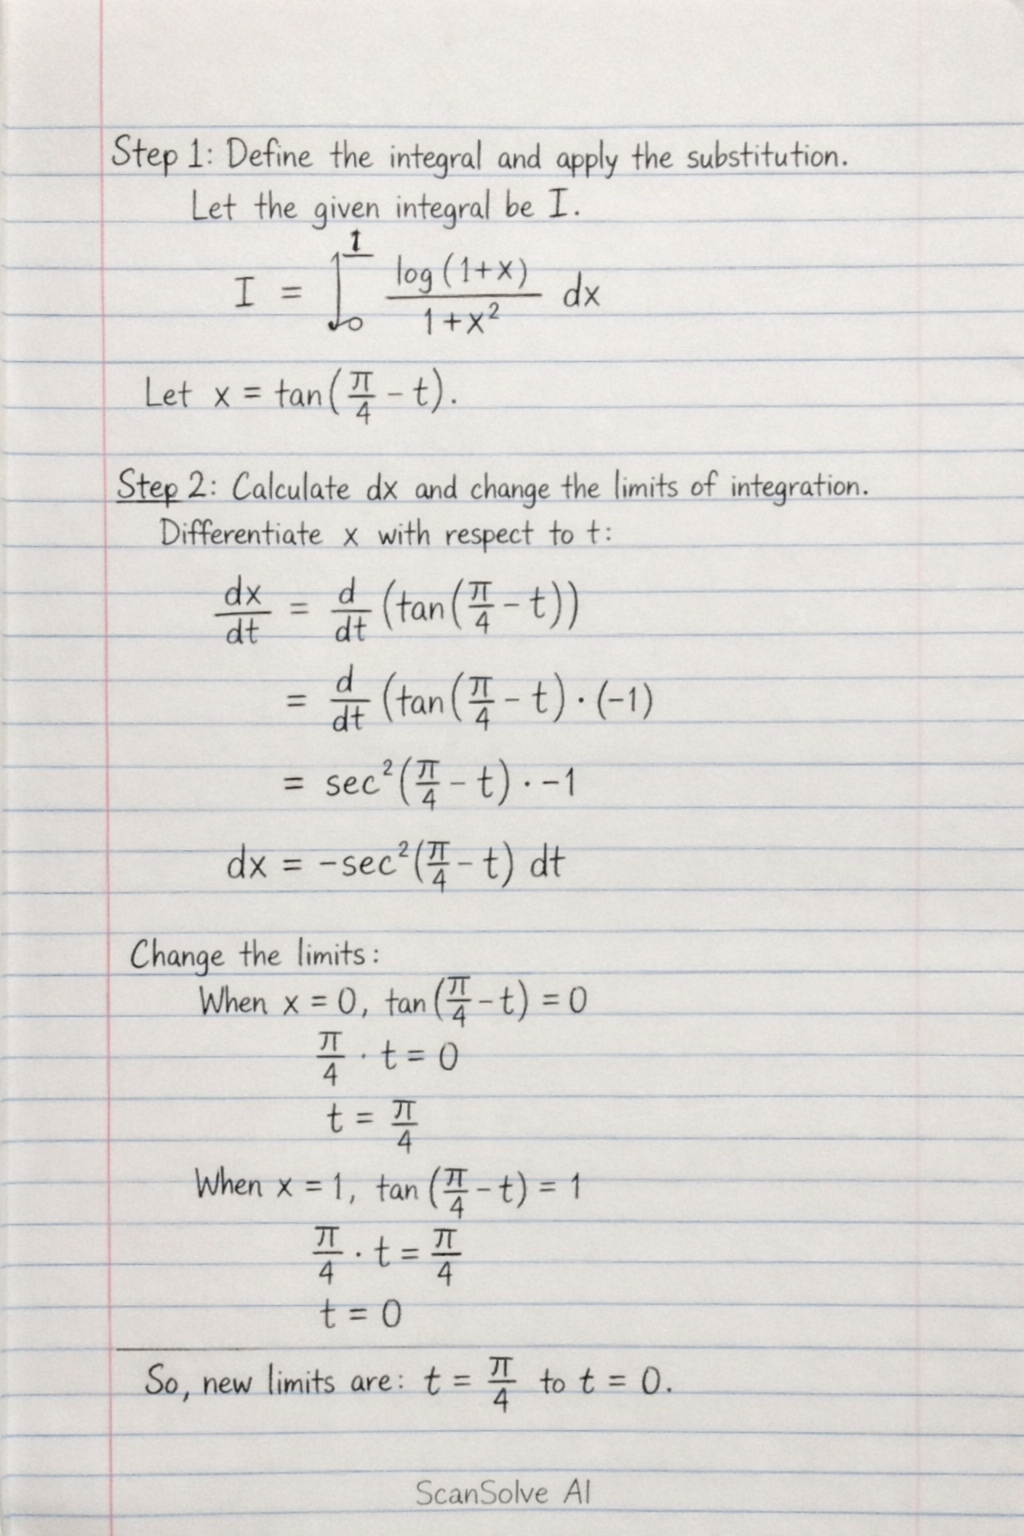 Step 1: Define the integral and apply the substitution.
Let the given integral be I.
I = ∫₀¹ log(1+x)/(1+x²) dx
Let x = tan(π/4 - t).
Step 2: Calculate dx and change the limits of integration.
Differentiate x with respect to t:
dx/dt = d/dt (tan(π/4 - t))
= d/dt (tan(π/4 - t) · (-1)
= sec²(π/4 - t) · -1
dx = -sec²(π/4 - t) dt
Change the limits:
When x = 0, tan(π/4 - t) = 0
π/4 · t = 0
t = π/4
When x = 1, tan(π/4 - t) = 1
π/4 · t = π/4
t = 0
So, new limits are: t = π/4 to t = 0.
ScanSolve AI